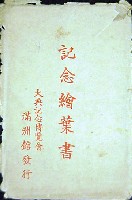 記念繪葉書
大典記念博覽會
滿洲館發行